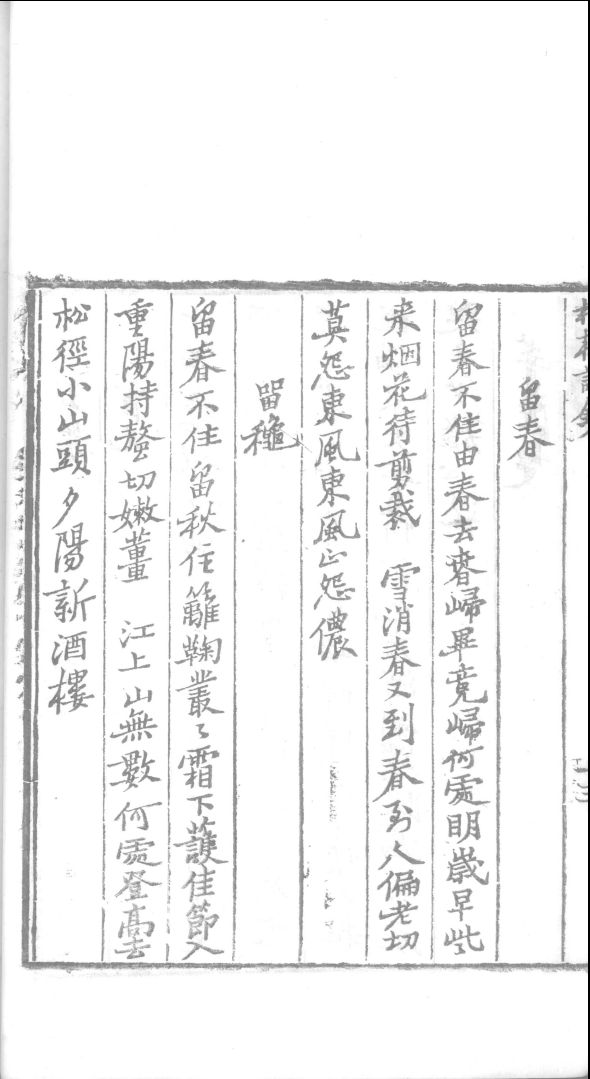 留春
留春不住由春去春歸畢竟歸何處明歲早些
来烟花待剪裁　雪消春又到春到人偏老切
莫怨東風東風正怨儂
留龝
留春不住留秋住籬鞠叢〻霜下護佳節入
重陽持螯切嫩薑　江上山無數何處登高去
松徑小山頭夕陽新酒樓